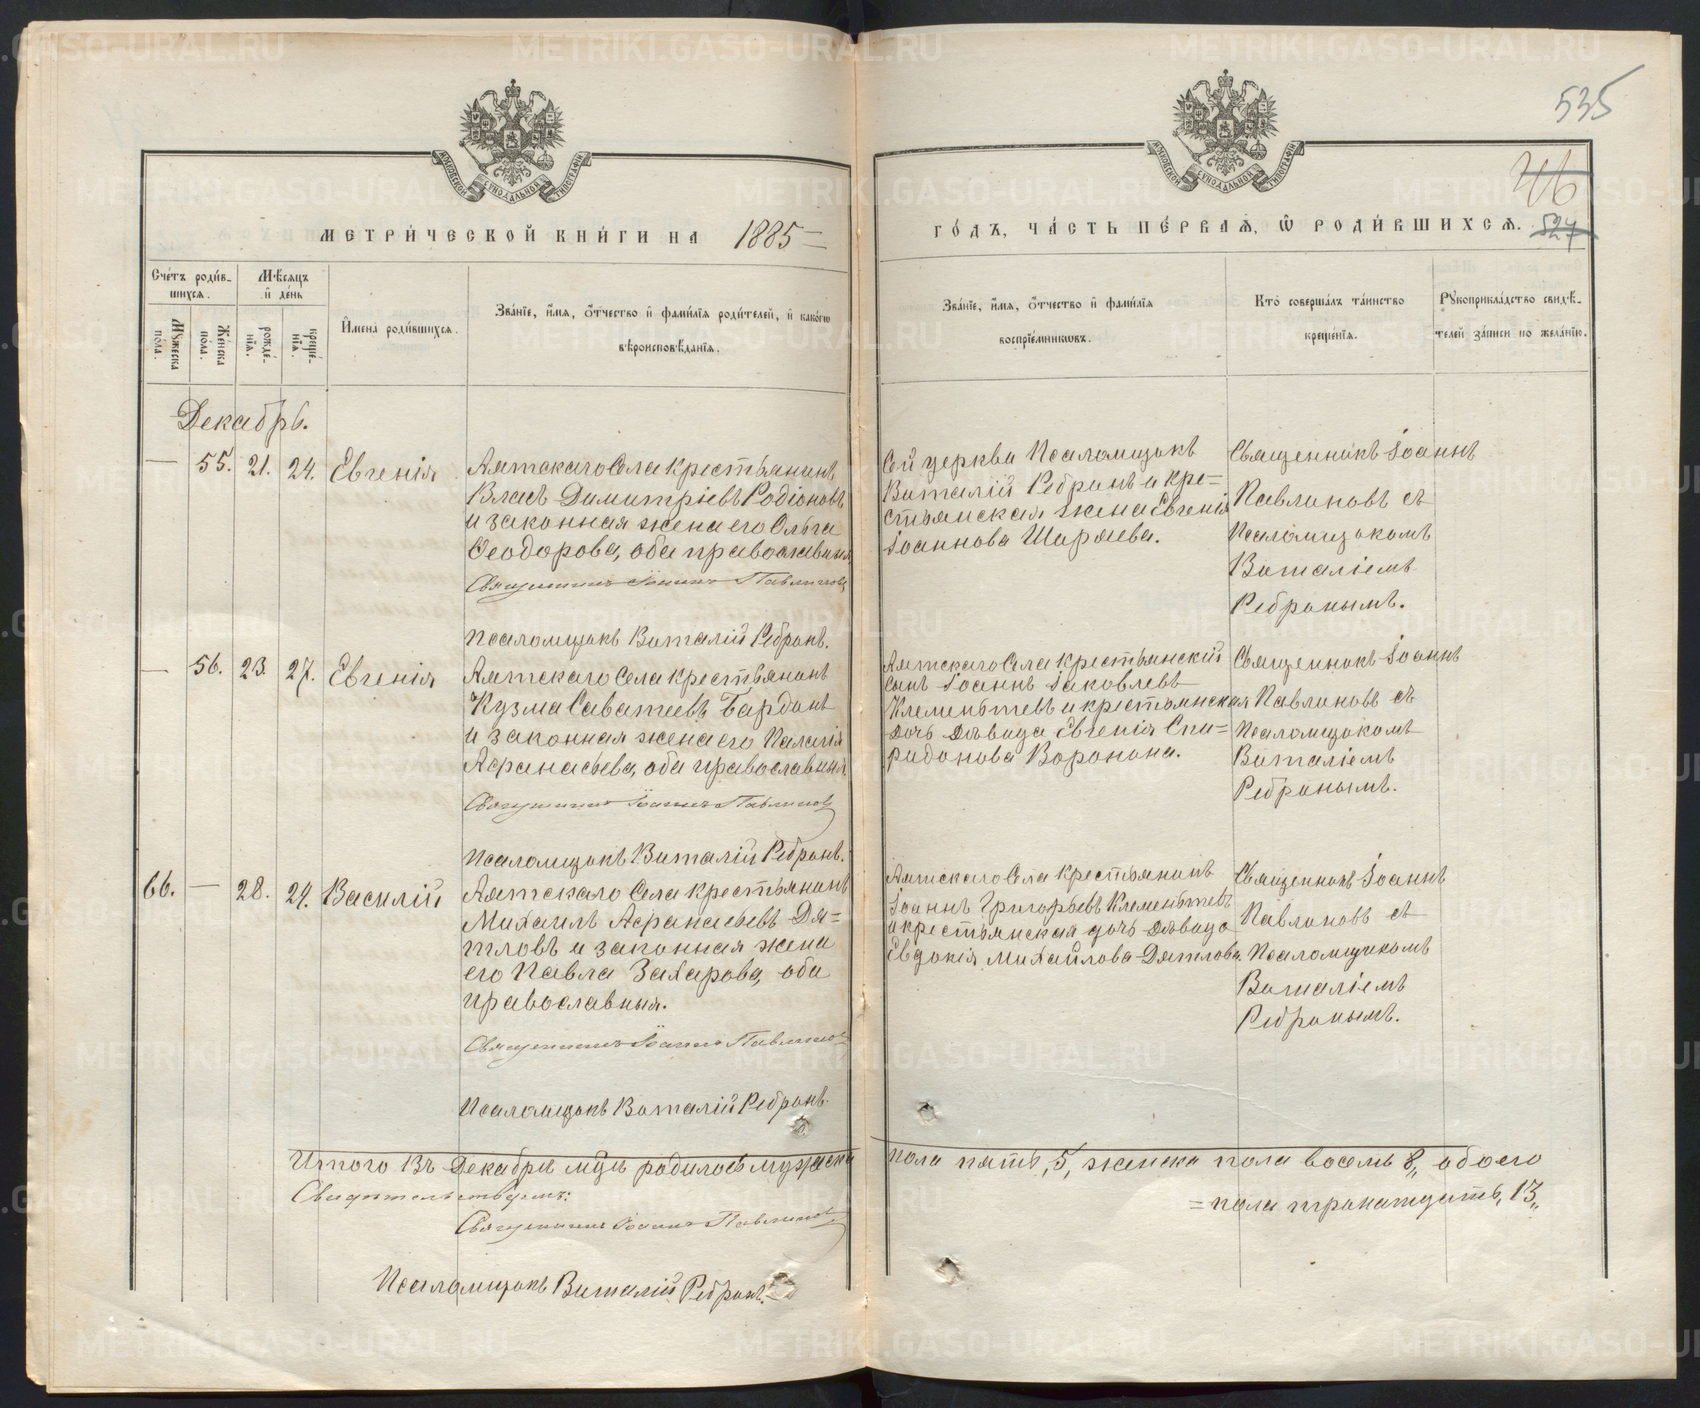 METRIKI.GASO-URAL.RU
535
МОСКОВСКОЙ СѴНОДАЛЬНОЙ ТИПОГРАФІИ
МОСКОВСКОЙ СѴНОДАЛЬНОЙ ТИПОГРАФІИ
МЕТРИ́ЧЕСКОЙ КНИ́ГИ НА 1885
527
ГО́ДЪ, ЧА́СТЬ ПЕ́РВАѦ, Ѡ҆ РОДИ́ВШИХСѦ.
Сче́тъ роди́в-
шихсѧ.
Мꙋжеска по́ла.
Же́нска по́ла.
Мѣ́сѧцъ
и҆ де́нь
рожде́-нїѧ.
креще́-нїѧ.
И҆мена̀ роди́вшихсѧ.
Зва́нїе, и҆́мѧ, ѻ҆́тчество и҆ фами́лїѧ роди́телей, и҆ како́гѡ
вѣроисповѣ́данїѧ.
Зва́нїе, и҆́мѧ, ѻ҆́тчество и҆ фами́лїѧ
воспрїе́мникѡвъ.
Кто̀ соверша́лъ та́инство
креще́нїѧ.
Рꙋкоприкла́дство свидѣ́-
телей за́писи по жела́нїю.
Декабрь.
— 55. 21. 24. Евгенія
Аятскаго Села крестьянинъ
Власъ Димитріевъ Родіоновъ
и законная жена его Ольга
Ѳеодорова, оба православныя
Священникъ Іоаннъ Павлиновъ
Псаломщикъ Виталій Ребринъ.
Сей церкви Псаломщикъ
Виталій Ребринъ и кре=
стьянская жена Евгенія
Іоаннова Ширяева.
Священникъ Іоаннъ
Павлиновъ съ
Псаломщикомъ
Виталіемъ
Ребринымъ.
— 56. 23. 27. Евгенія
Аятскаго Села крестьянинъ
Кузма Саватеевъ Бардинъ
и законная жена его Палагія
Аѳанасьева, оба православныя
Священникъ Іоаннъ Павлиновъ
Псаломщикъ Виталій Ребринъ.
Аятскаго Села крестьянскій
сынъ Іоаннъ Іаковлевъ
Клементьевъ и крестьянская
дочь дѣвица Евгенія Спи=
ридонова Воронина.
Священникъ Іоаннъ
Павлиновъ съ
Псаломщикомъ
Виталіемъ
Ребринымъ.
66. — 28. 29. Василій
Аятскаго Села крестьянинъ
Михаилъ Аѳанасьевъ Дя=
тловъ и законная жена
его Павла Захарова, оба
православныя.
Священникъ Іоаннъ Павлиновъ
Псаломщикъ Виталій Ребринъ.
Аятскаго Села крестьянинъ
Іоаннъ Григорьевъ Клементьевъ
и крестьянская дочь дѣвица
Евдокія Михайлова Дятлова.
Священникъ Іоаннъ
Павлиновъ съ
Псаломщикомъ
Виталіемъ
Ребринымъ.
Итого въ Декабрѣ мцѣ родилось мужеска пола пять, 5, женска пола восемь 8, обоего
= пола тринатцать, 13,
Свидѣтельствуемъ:
Священникъ Іоаннъ Павлиновъ
Псаломщикъ Виталій Ребринъ.